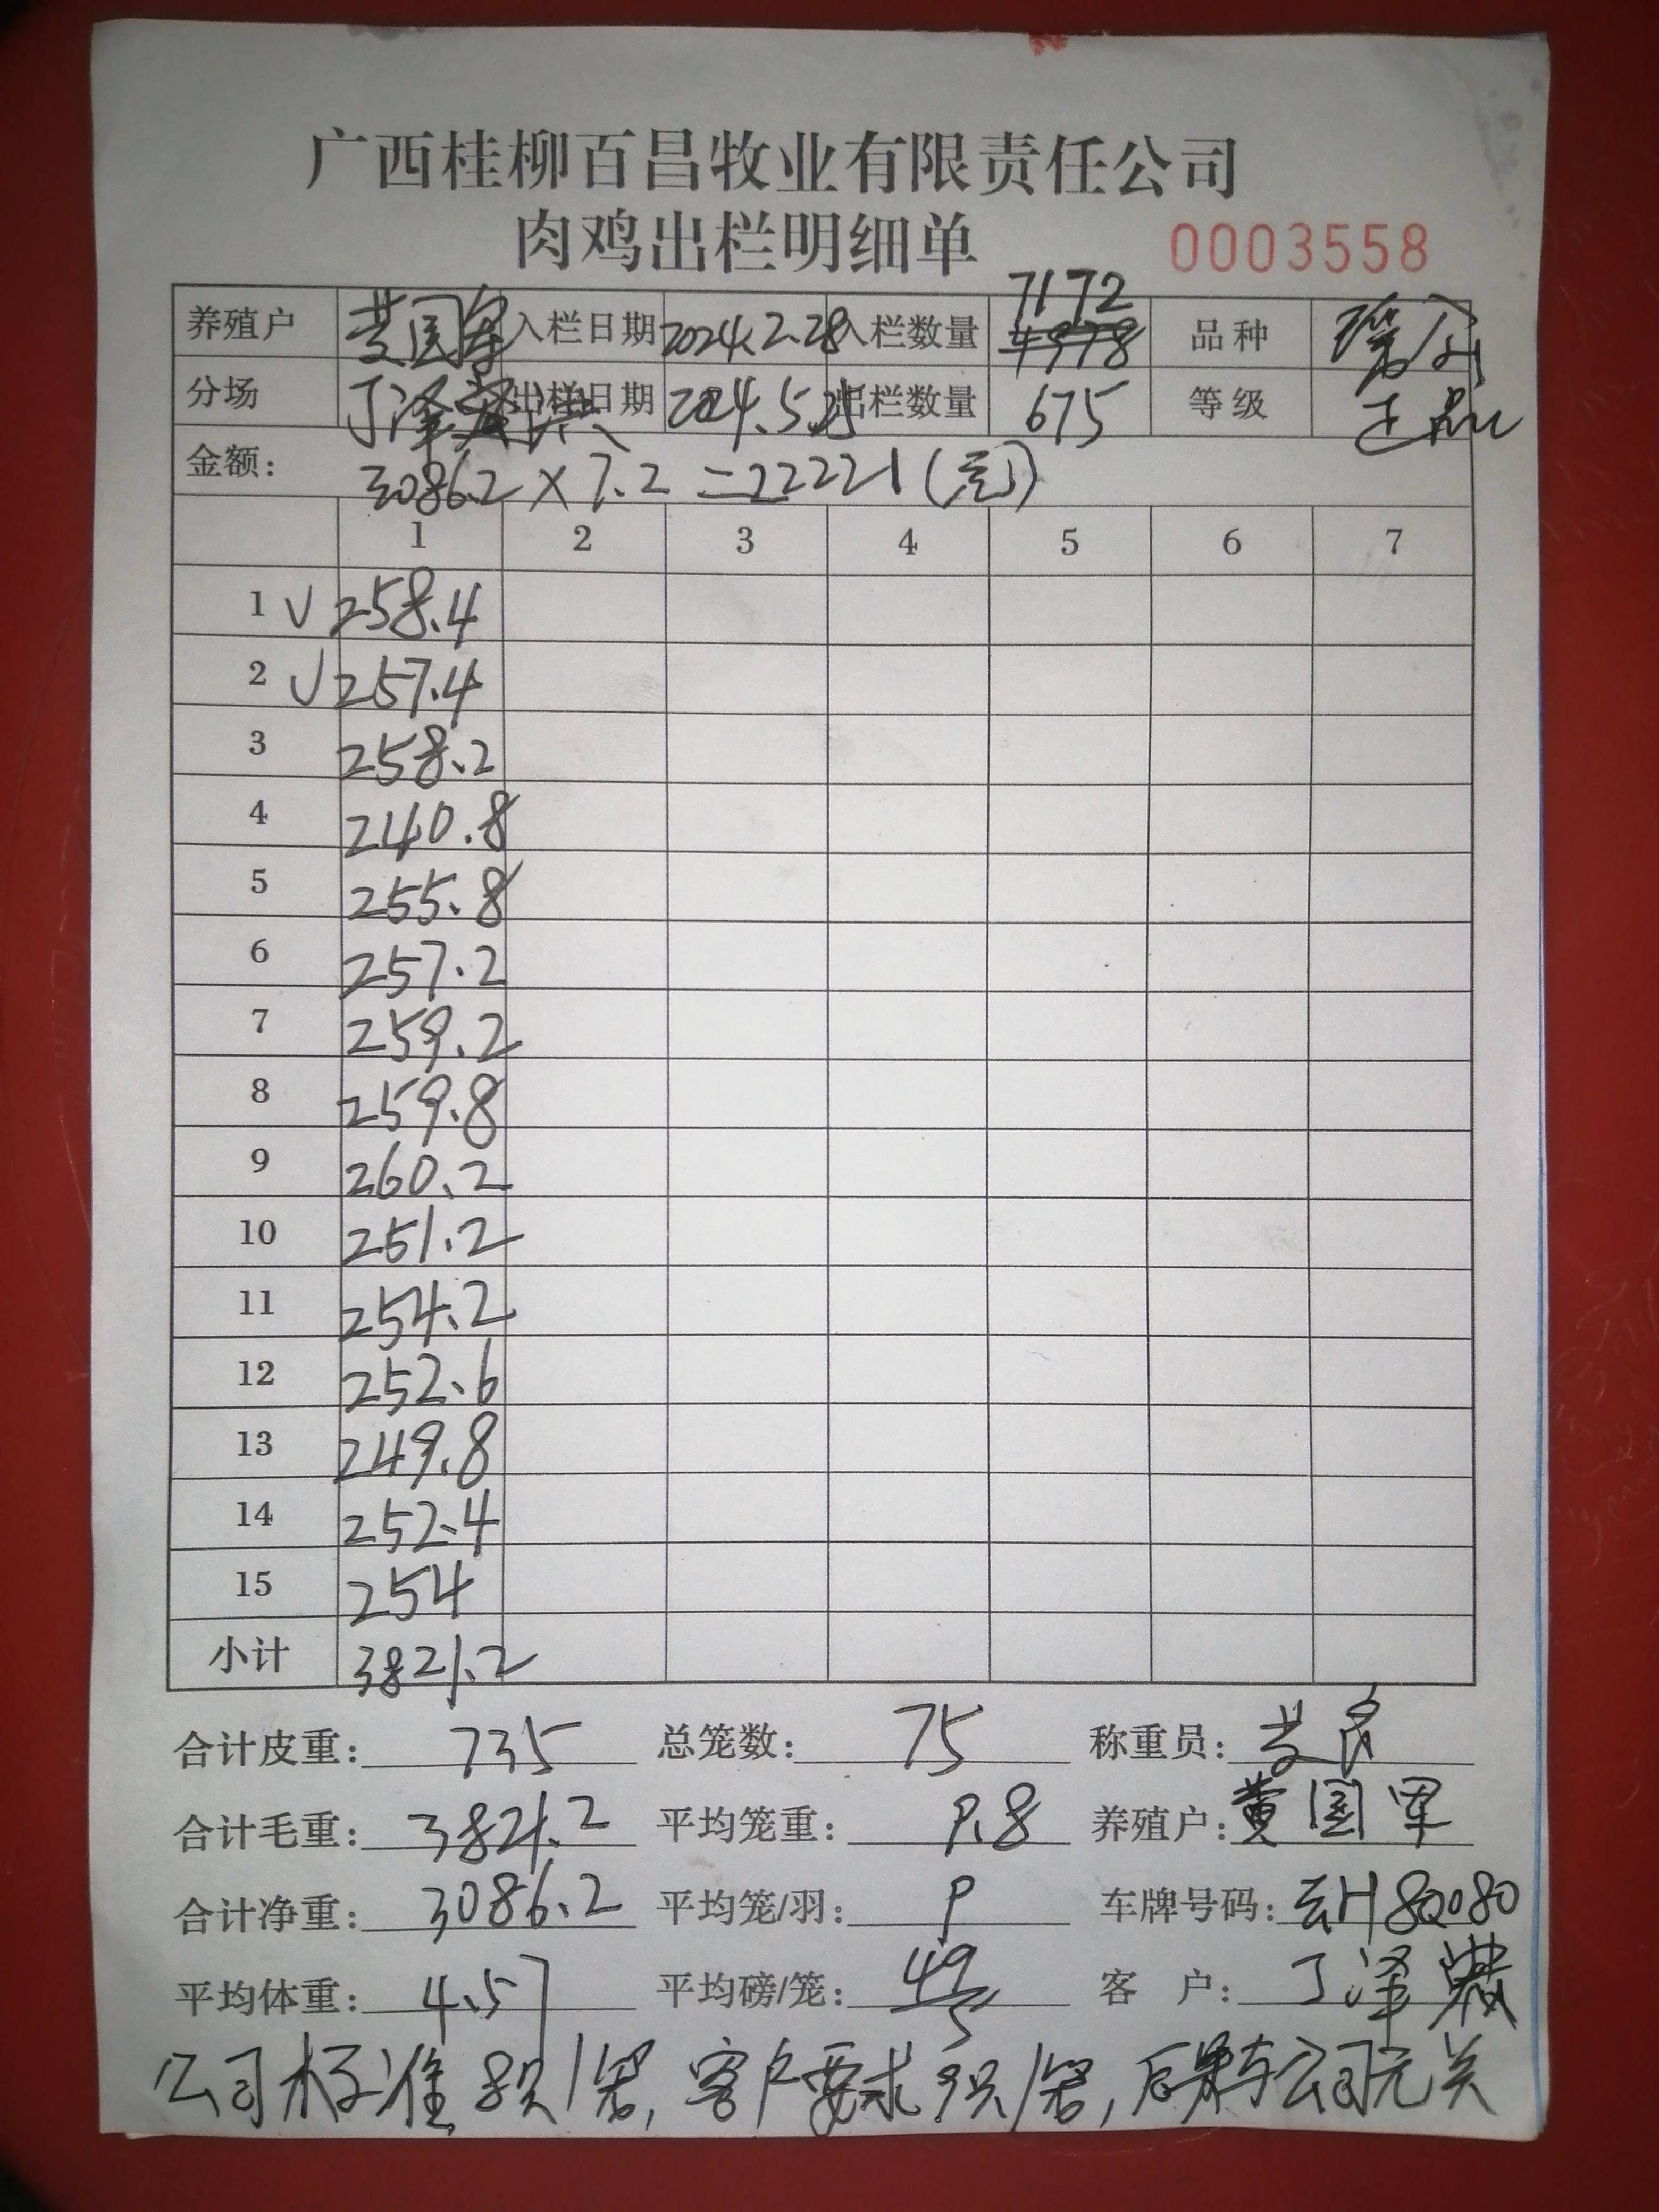 广西桂柳百昌牧业有限责任公司
肉鸡出栏明细单 0003558
7172
养殖户 黄国军 入栏日期 2024.2.28 入栏数量 品种
分场 丁泽 出栏日期 2024.5.25 出栏数量 675 等级 正品
金额: 3086.2×7.2=22221(元)
1 2 3 4 5 6 7
1 √ 258.4
2 √ 257.4
3 258.2
4 240.8
5 255.8
6 257.2
7 259.2
8 259.8
9 260.2
10 251.2
11 254.2
12 252.6
13 249.8
14 252.4
15 254
小计 3821.2
合计皮重: 735 总笼数: 75 称重员:
合计毛重: 3821.2 平均笼重: 9.8 养殖户: 黄国军
合计净重: 3086.2 平均笼/羽: 9 车牌号码:
平均体重: 4.57 平均磅/笼: 客 户: 丁泽
公司标准8只/笼,客户要求9只/笼,后果与公司无关